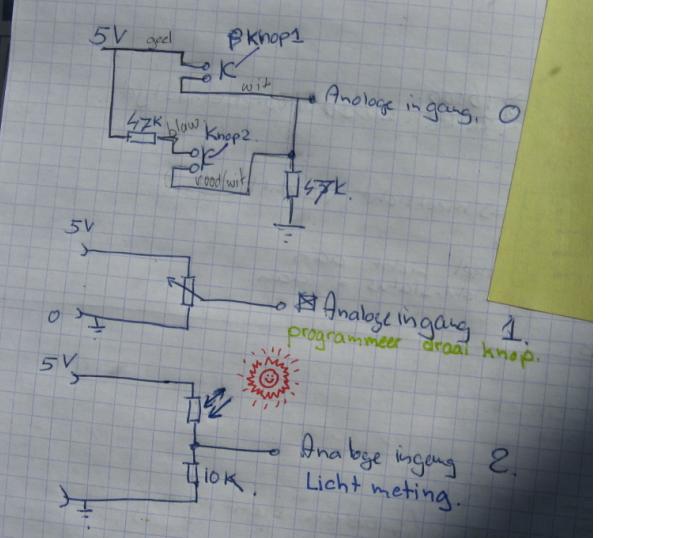 5V geel Knop1
K
wit
Analoge ingang. 0
47K blauw Knop2
K
rood/wit
47K.
5V
0
Analoge ingang 1.
programmeer draai knop.
5V
Analoge ingang 2.
10K.
Licht meting.